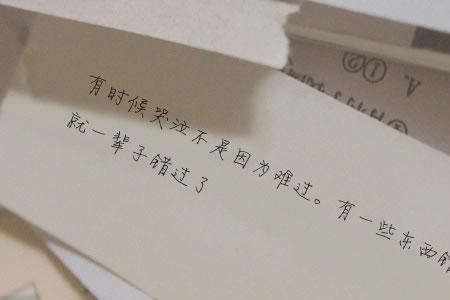 有时候哭泣不是因为难过。有一些东西错
就一辈子错过了
A. ①②